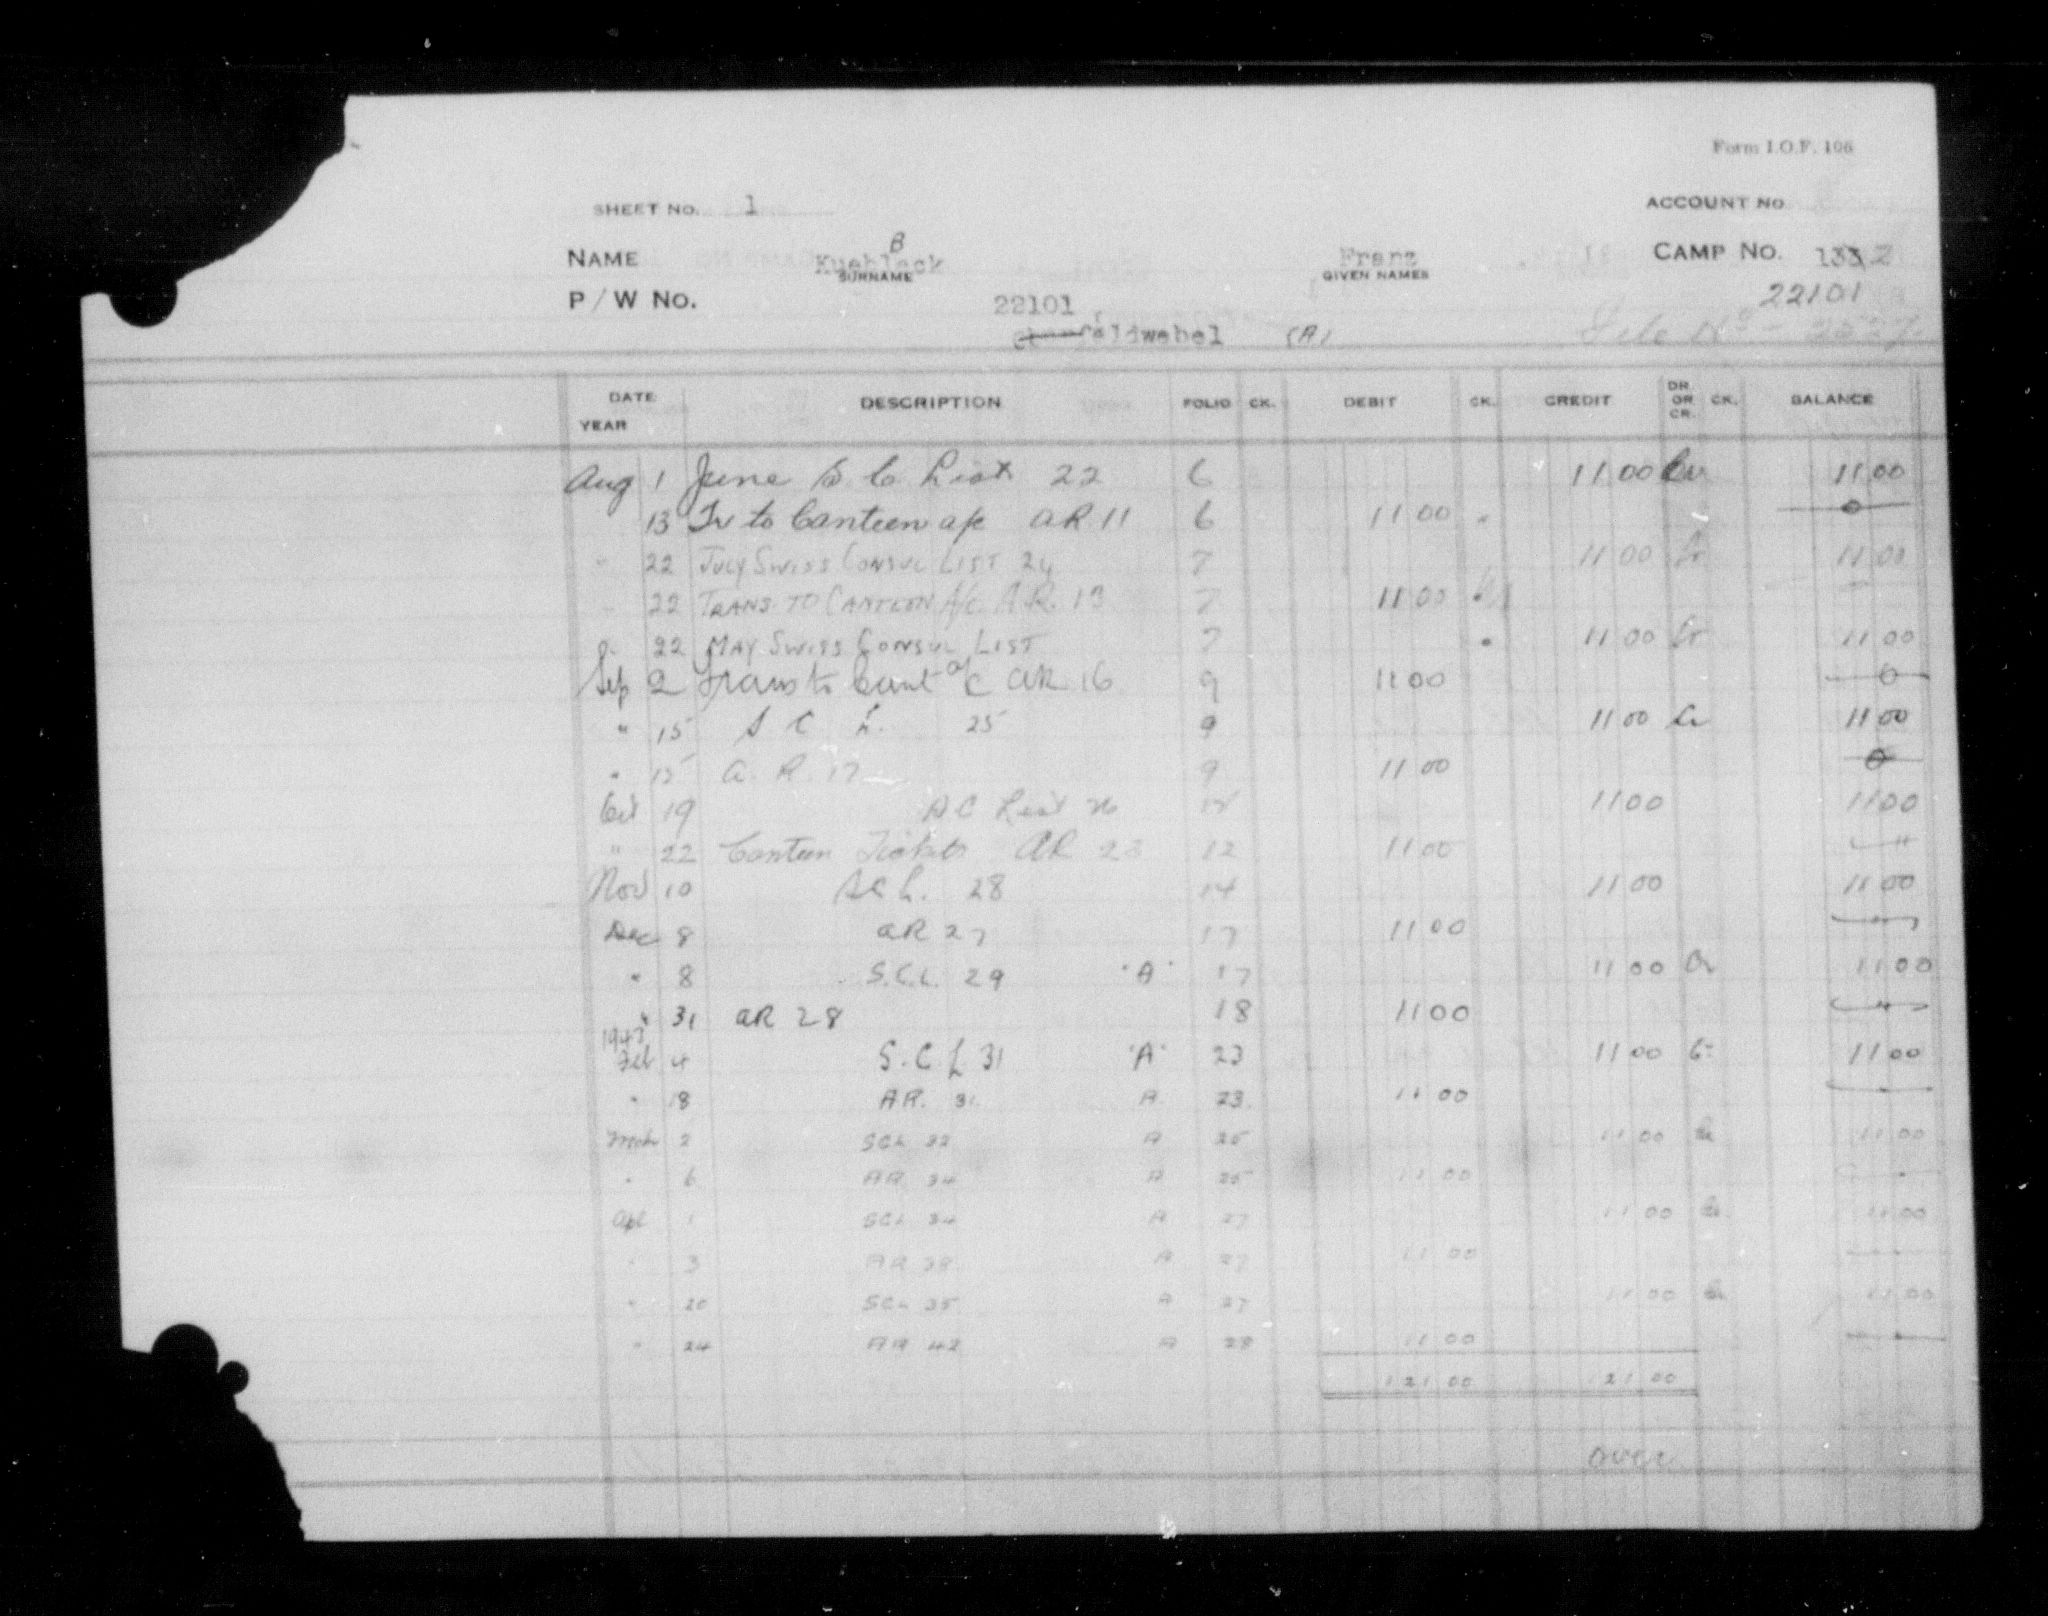 Form I.O.F. 106
SHEET No. 1
ACCOUNT No
B
NAME Kuehlack Franz CAMP No. 133 2
SURNAME GIVEN NAMES
P/W No. 22101 22101
feldwebel (A) File No
DATE DESCRIPTION FOLIO CK. DEBIT CK. CREDIT DR. OR CR. CK. BALANCE
YEAR
Aug 1 June S C List 22 6 11 00 Cr 11 00
13 Tr to Canteen a/c AR 11 6 11 00 0
" 22 JULY SWISS CONSUL LIST 24 7 11 00 Cr 11 00
" 22 TRANS. TO CANTEEN A/C A.R. 13 7 11 00
" 22 MAY SWISS CONSUL LIST 7 11 00 Cr 11 00
Sep 2 Trans to Cant a/c AR 16 9 11 00 0
" 15 S C L. 25 9 11 00 Cr 11 00
" 15 A. R. 17 9 11 00 0
Oct 19 S C List 26 12 11 00 11 00
" 22 Canteen Tickets AR 23 12 11 00 "
Nov 10 S C L. 28 14 11 00 11 00
Dec 8 AR 27 17 11 00 "
" 8 S.C.L. 29 "A" 17 11 00 Cr 11 00
" 31 AR 28 18 11 00 "
1943
Feb 4 S.C L 31 "A" 23 11 00 Cr 11 00
" 18 AR. 31. A 23. 11 00
Mch 2 SCL 32 A 25 11 00 Cr 11 00
" 6 AR 34 A 25 11 00
Apl 1 SCL 34 A 27 11 00 Cr. 11 00
" 3 AR 38 A 27 11 00
" 20 SCL 35 A 27 11 00 Cr 11 00
" 24 AR 42 A 28 11 00
121 00 121 00
over